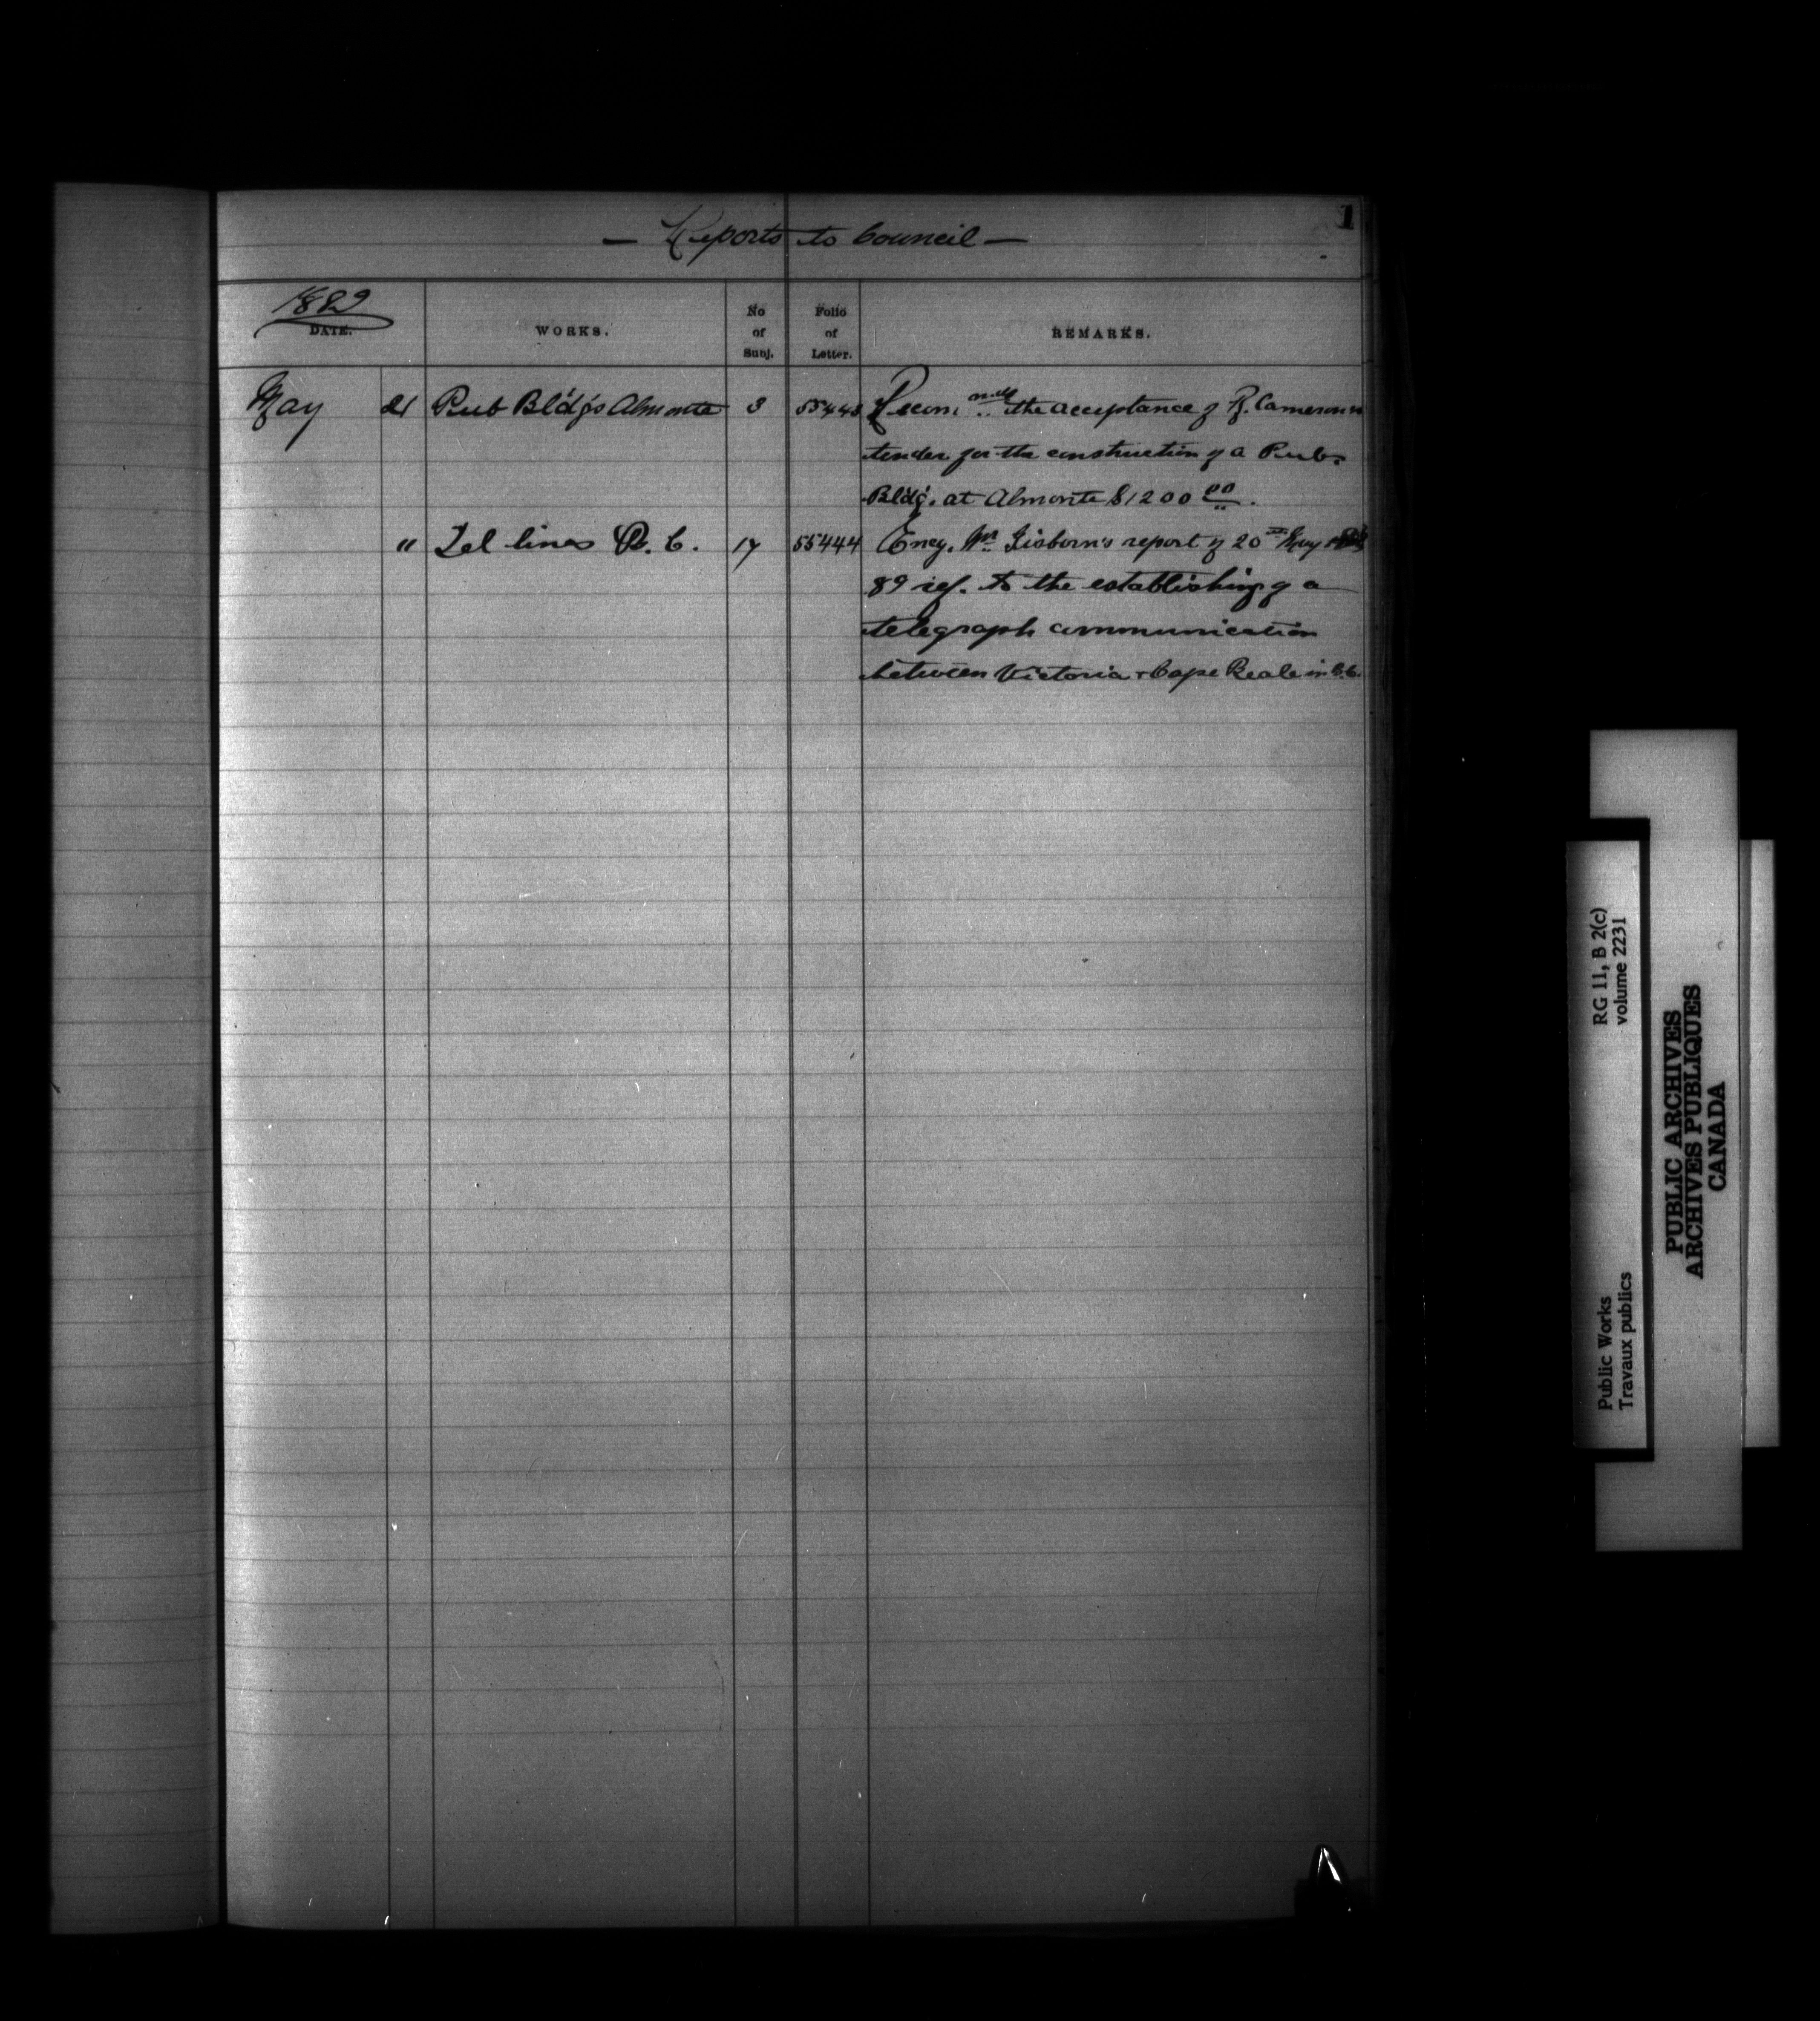 1
— Reports to Council —
1889
DATE. WORKS. No of Subj. Folio of Letter. REMARKS.
May 21 Pub Bld'gs Almonte 3 55443 Recomnd.. the acceptance of R. Cameron's
tender for the construction of a Pub.
Bld'g. at Almonte $1200 00.
" Tel lines B. C. 17 55444 Ency. Mr Gisborn's report of 20th May
89 ref. to the establishing of a
telegraph communication
between Victoria & Cape Beale in B.C.
RG 11, B 2(c)
volume 2231
Public Works
Travaux publics
PUBLIC ARCHIVES
ARCHIVES PUBLIQUES
CANADA